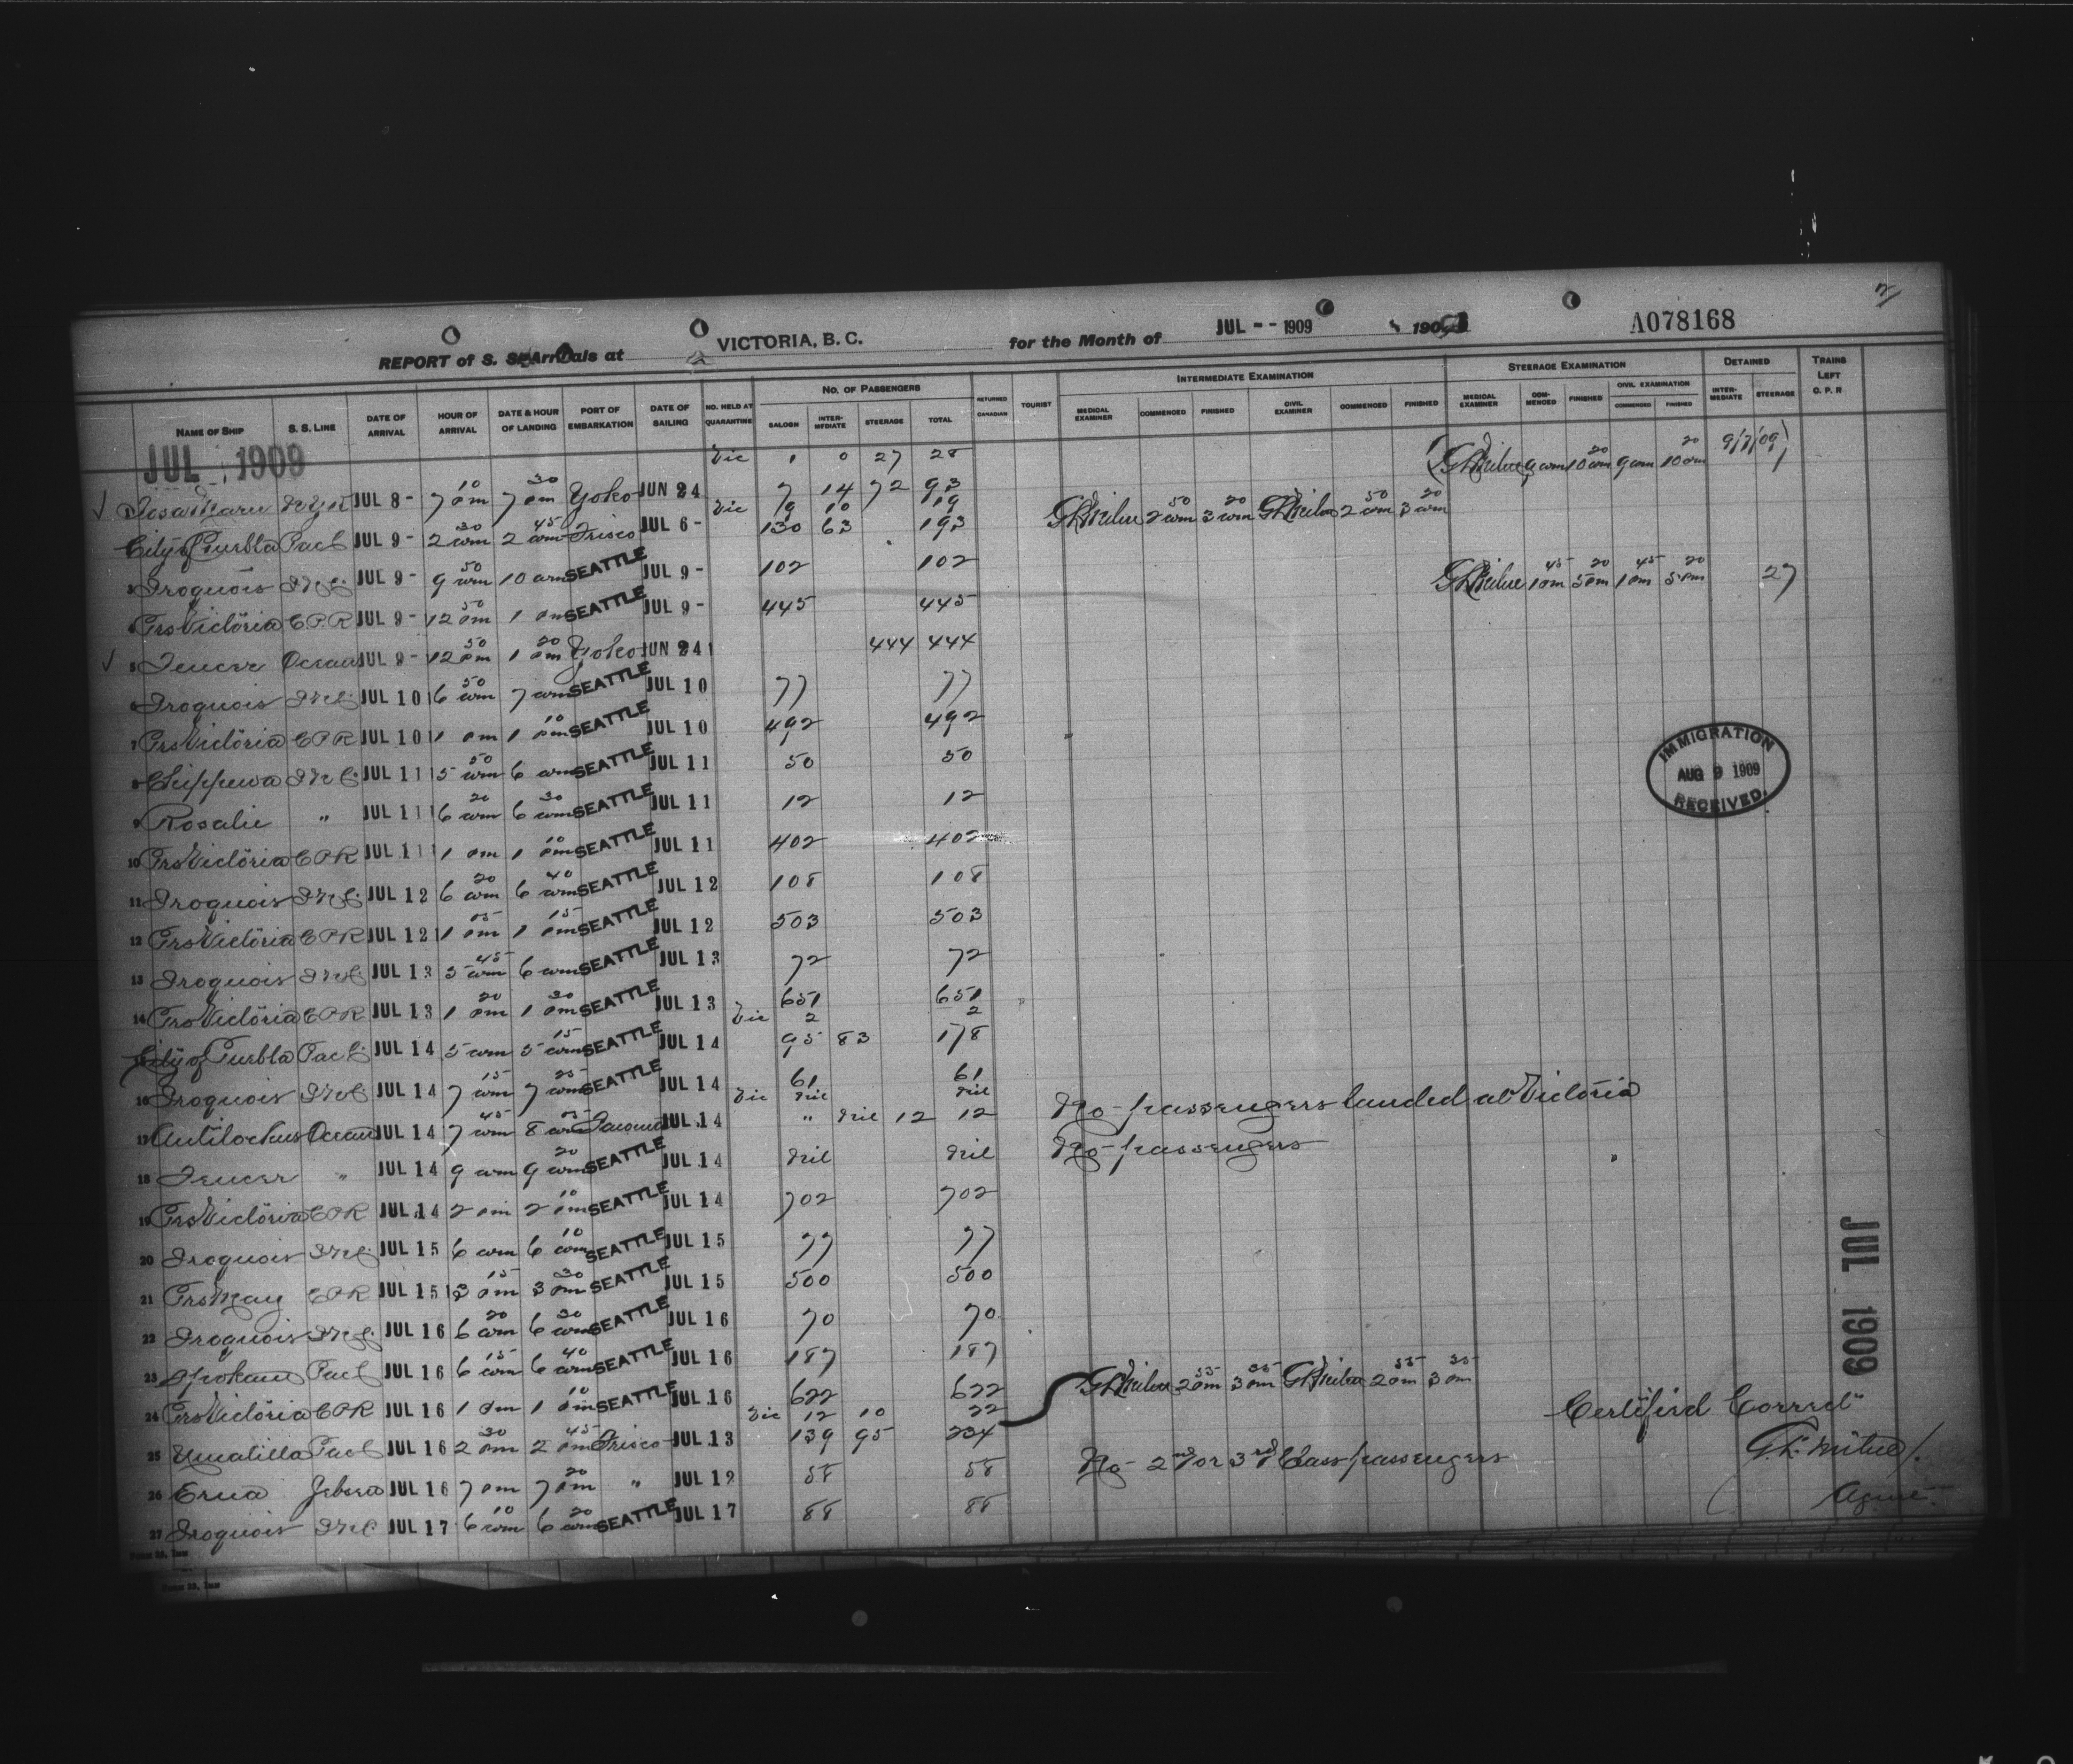 2
REPORT of S. S. Arrivals at VICTORIA, B. C. for the Month of JUL -- 1909 190 A078168
NAME OF SHIP S. S. LINE DATE OF ARRIVAL HOUR OF ARRIVAL DATE & HOUR OF LANDING PORT OF EMBARKATION DATE OF SAILING NO. HELD AT QUARANTINE NO. OF PASSENGERS SALOON INTER-MEDIATE STEERAGE TOTAL RETURNED CANADIAN TOURIST INTERMEDIATE EXAMINATION MEDICAL EXAMINER COMMENCED FINISHED CIVIL EXAMINER COMMENCED FINISHED STEERAGE EXAMINATION MEDICAL EXAMINER COM-MENCED FINISHED CIVIL EXAMINATION COMMENCED FINISHED DETAINED INTER-MEDIATE STEERAGE TRAINS LEFT C. P. R
JUL 1909
Vic 1 0 27 28 9 am 10 20 am 9 am 10 20 am 9/7/09 1
1 Tosa Maru JUL 8- 7 10 pm 7 30 pm Yoko JUN 24 7 14 72 93
Vic 9 10 19 2 50 am 3 20 am 2 50 am 3 20 am
City of Puebla Pac C JUL 9- 2 30 am 2 45 am Frisco JUL 6- 130 63 193
3 Iroquois JUL 9- 9 50 am 10 am SEATTLE JUL 9- 102 102
1 45 pm 5 20 pm 1 45 pm 5 20 pm 27
4 Prs Victoria C.P.R JUL 9- 12 50 pm 1 pm SEATTLE JUL 9- 445 445
5 Teucer Ocean JUL 9- 12 50 pm 1 20 pm Yoko JUN 24 444 444
6 Iroquois JUL 10 6 50 am 7 am SEATTLE JUL 10 77 77
7 Prs Victoria CPR JUL 10 1 pm 1 10 pm SEATTLE JUL 10 492 492
8 Chippewa JUL 11 5 50 am 6 am SEATTLE JUL 11 50 50
IMMIGRATION AUG 9 1909 RECEIVED.
9 Rosalie " JUL 11 6 20 am 6 30 am SEATTLE JUL 11 12 12
10 Prs Victoria CPR JUL 11 1 pm 1 10 pm SEATTLE JUL 11 402 402
11 Iroquois JUL 12 6 20 am 6 40 am SEATTLE JUL 12 108 108
12 Prs Victoria CPR JUL 12 1 05 pm 1 15 pm SEATTLE JUL 12 503 503
13 Iroquois JUL 13 5 45 am 6 am SEATTLE JUL 13 72 72
14 Prs Victoria CPR JUL 13 1 20 pm 1 30 pm SEATTLE JUL 13 651 651
Vic 2 2
City of Puebla Pac C JUL 14 5 am 5 15 am SEATTLE JUL 14 95 83 178
16 Iroquois JUL 14 7 15 am 7 25 am SEATTLE JUL 14 61 61
Vic Nil Nil
17 Antilochus Ocean JUL 14 7 45 am 8 05 am Tacoma JUL 14 " Nil 12 12 No passengers landed at Victoria
18 Teucer " JUL 14 9 am 9 20 am SEATTLE JUL 14 Nil Nil No passengers
19 Prs Victoria CPR JUL 14 2 pm 2 10 pm SEATTLE JUL 14 702 702
20 Iroquois JUL 15 6 am 6 10 am SEATTLE JUL 15 77 77
21 Prs May CPR JUL 15 3 15 pm 3 30 pm SEATTLE JUL 15 500 500
JUL 1909
22 Iroquois JUL 16 6 20 am 6 30 am SEATTLE JUL 16 70 70
23 Spokane Pac C JUL 16 6 15 am 6 40 am SEATTLE JUL 16 187 187
24 Prs Victoria CPR JUL 16 1 pm 1 10 pm SEATTLE JUL 16 622 622 2 55 pm 3 35 pm 2 55 pm 3 35 pm
Vic 12 10 22
25 Umatilla Pac C JUL 16 2 30 pm 2 45 pm Frisco JUL 13 139 95 234
Certified Correct
26 Erna Jebsen JUL 16 7 pm 7 20 pm " JUL 12 58 58 No 2nd or 3rd Class passengers
27 Iroquois JUL 17 6 10 am 6 20 am SEATTLE JUL 17 88 88
Agent.